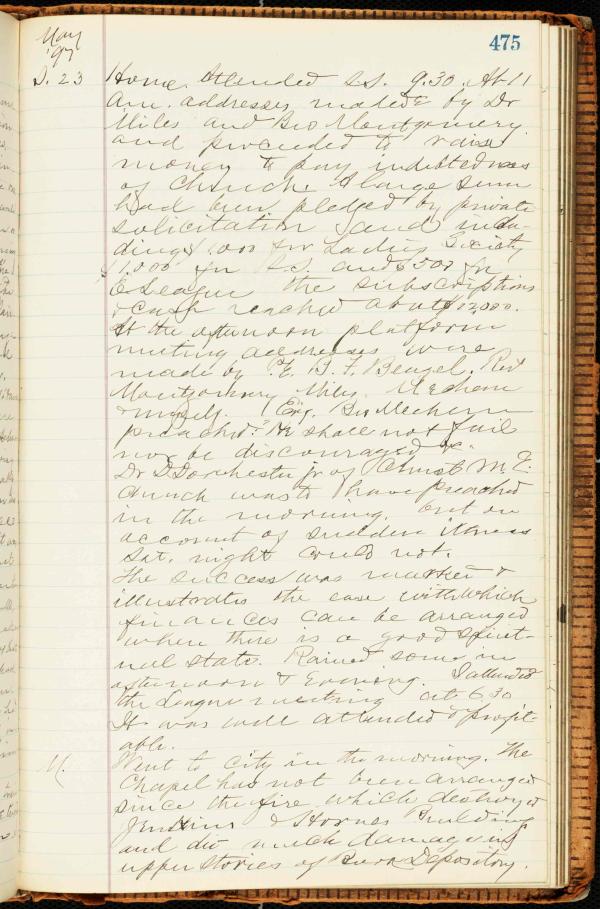 May
'97
475
S. 23 Home. Attended S.S. 9.30. At 11
Am. addresses made by Dr
Miles and Bro Montgomery
and proceeded to raise
money to pay indebtedness
of Church. A large sum
had been pledged by private
solicitation and inclu-
ding $1,000 for Ladies Society
$1,000 for S.S. and $500 for
E. League the subscriptions
& cash reached about $12,000.
At the afternoon platform
meeting addresses were
made by P.E. B. F. Beazel, Rev
Montgomery, Miles, Mechem
& myself. Evg. Bro Mechem
preached. "He shall not fail
nor be discouraged" &c.
Dr D Dorchester jr of Christ M.E.
Church was to have preached
in the morning, but on
account of sudden illness
Sat. night could not.
The success was marked &
illustrates the ease with which
finances can be arranged
when there is a good spirit-
ual state. Rained some in
afternoon & Evening. I attended
the League meeting at 6.30
It was well attended & profit-
able.
M. Went to city in the morning. The
Chapel has not been arranged
since the fire which destroyed
Jenkins & Hornes Building
and did much damage in
upper Stories of Book Depository.